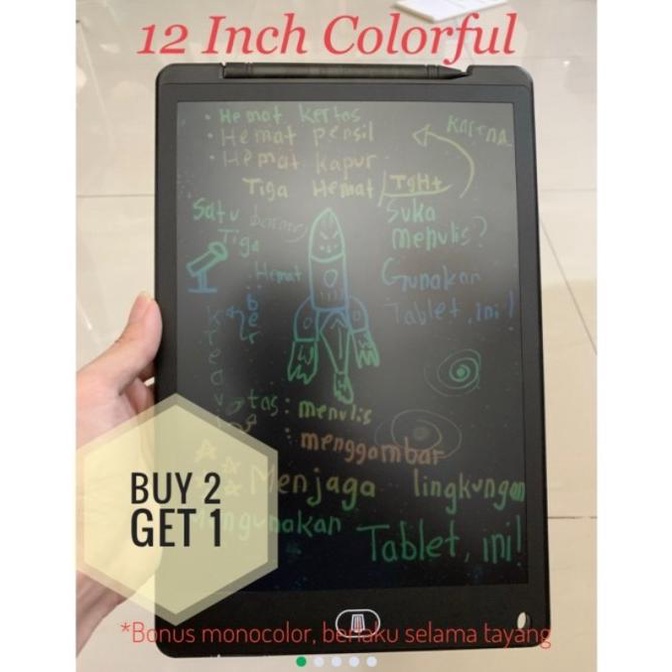 12 Inch Colorful
• Hemat kertas
• Hemat pensil
• Hemat kapur
Karena
Tiga Hemat TGH+
Satu
Tiga
Hemat
Suka
menulis?
Gunakan
Tablet, ini!
tas: menulis
: menggambar
Menjaga lingkungan
Tablet, ini!
BUY 2
GET 1
*Bonus monocolor, berlaku selama tayang